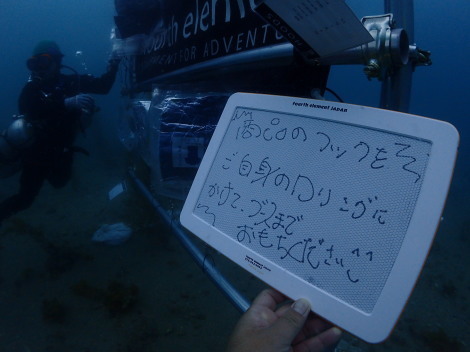 fourth element
EQUIPMENT FOR ADVENTURE
Fourth element JAPAN
商品のフックを
ご自身のDリングに
かけて、ブースまで
おもちください^^